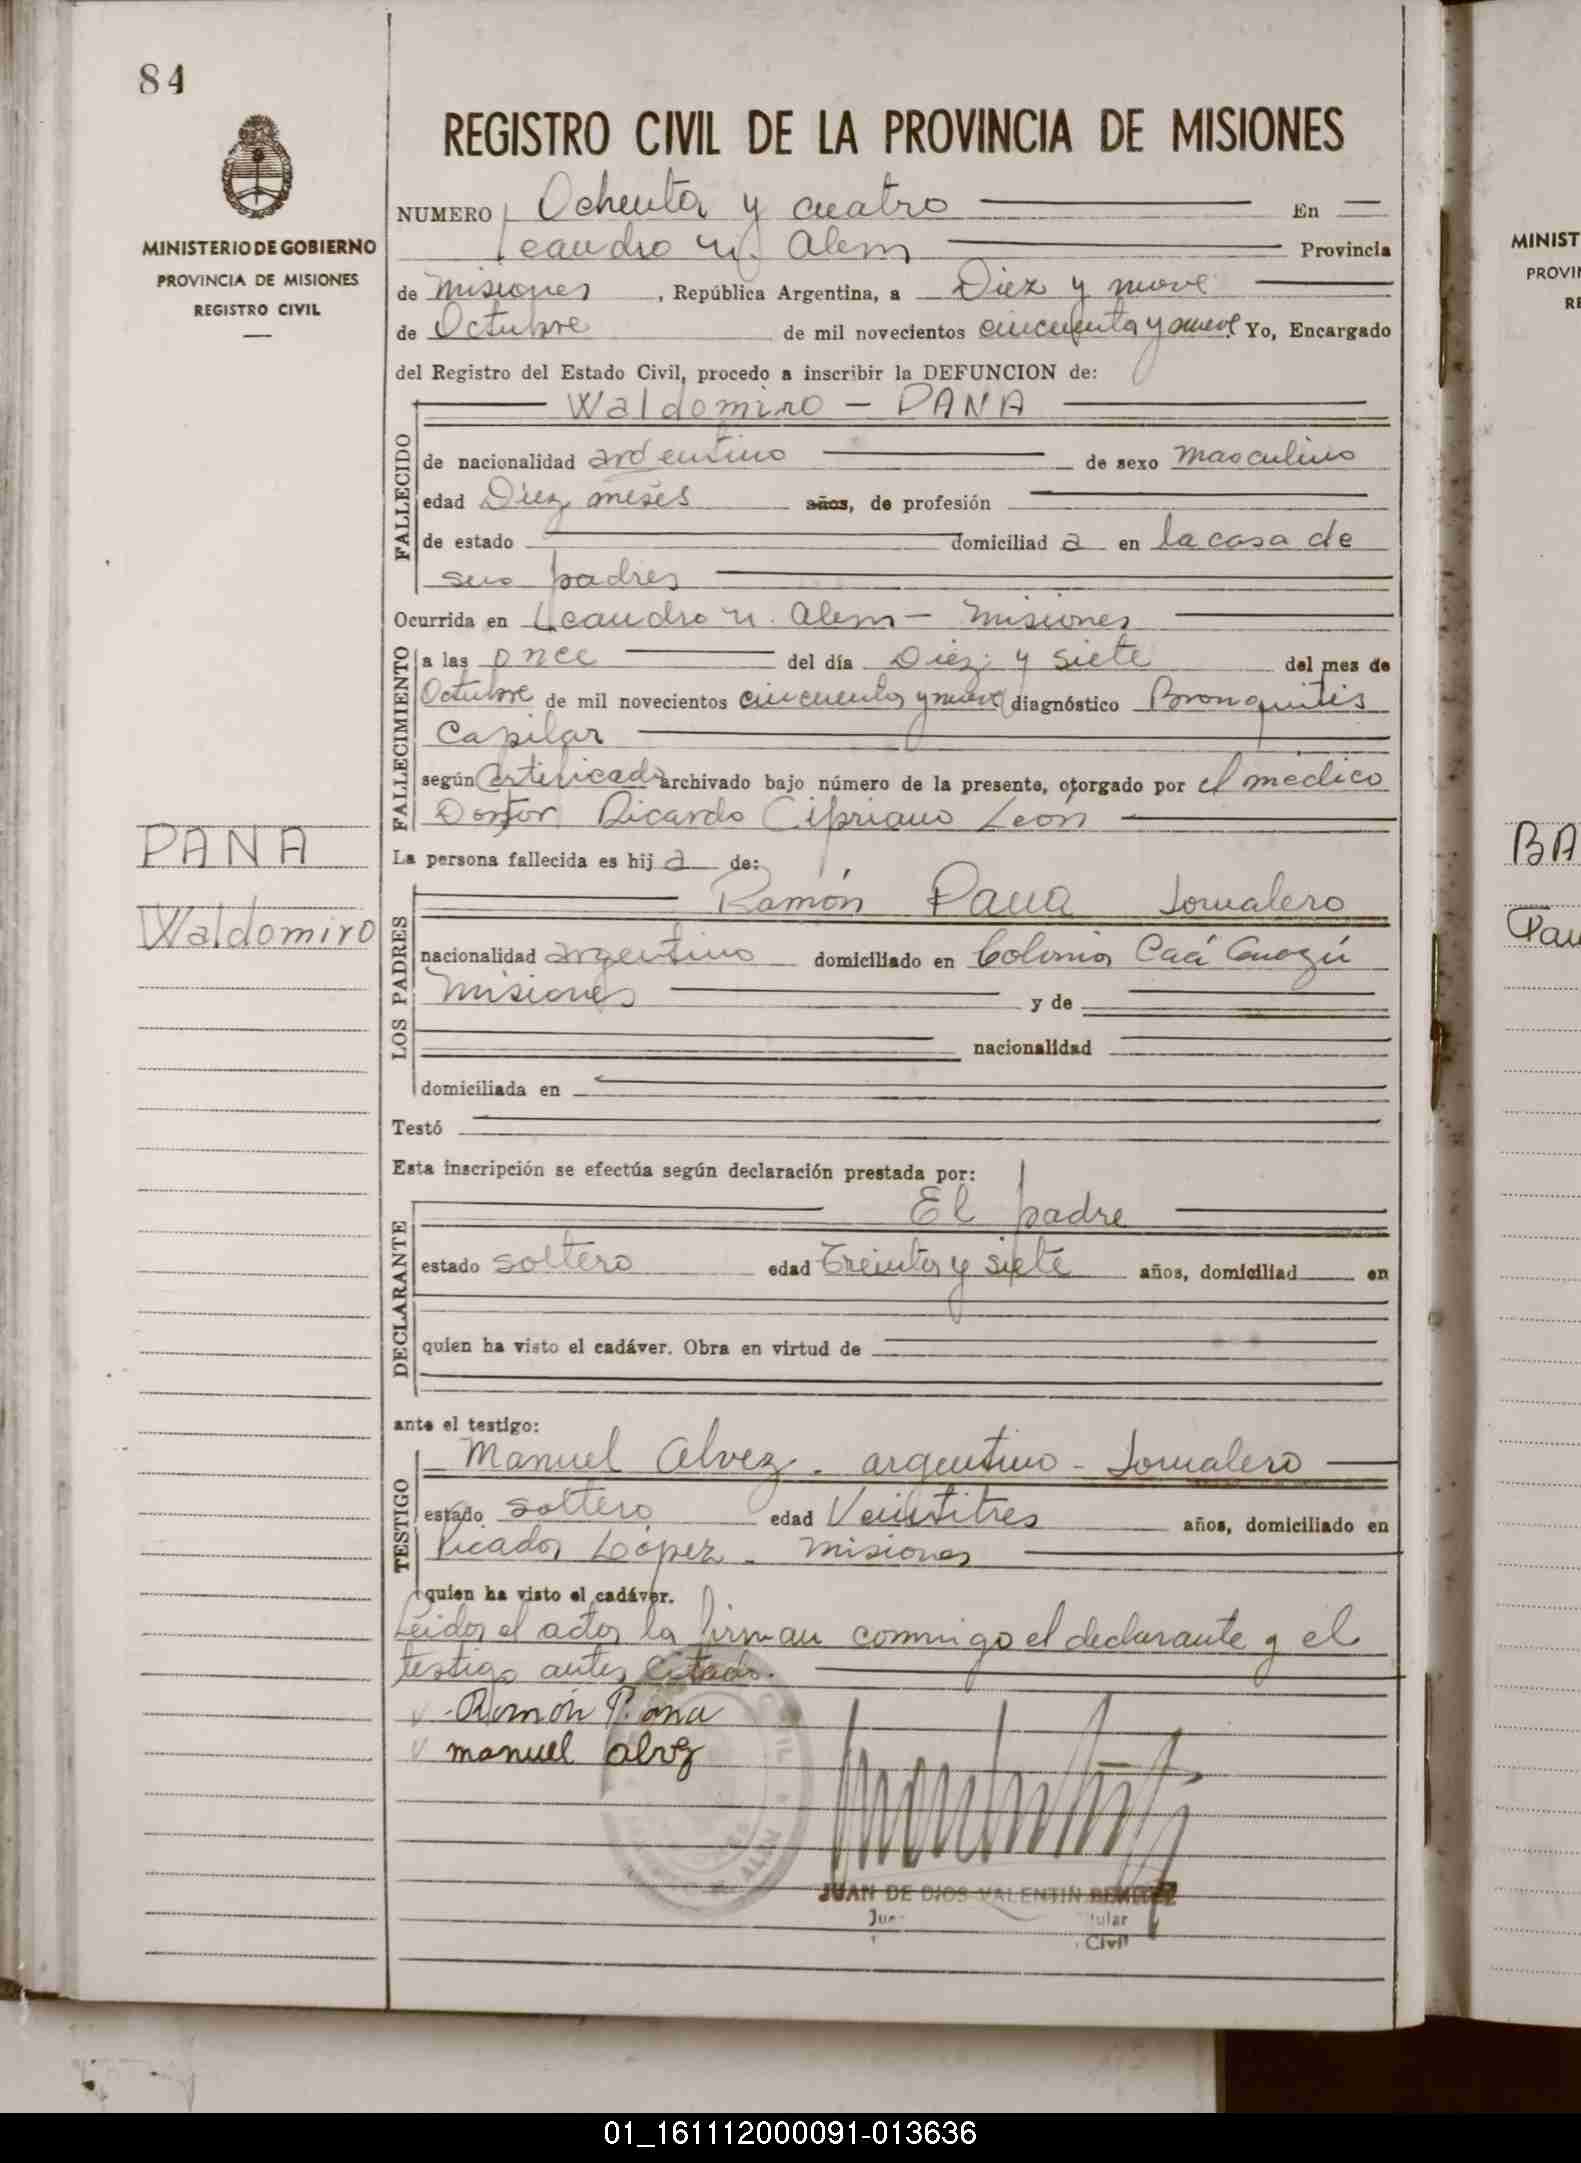 84
MINISTERIO DE GOBIERNO
PROVINCIA DE MISIONES
REGISTRO CIVIL
REGISTRO CIVIL DE LA PROVINCIA DE MISIONES
NUMERO Ochenta y cuatro En
Leandro N. Alem Provincia
de Misiones, República Argentina, a Diez y nueve
de Octubre de mil novecientos cincuenta y nueve Yo, Encargado
del Registro del Estado Civil, procedo a inscribir la DEFUNCION de:
Waldomiro - PANA
FALLECIDO
de nacionalidad argentino de sexo masculino
edad Diez meses años, de profesión
de estado domiciliad a en la casa de
sus padres
Ocurrida en Leandro N. Alem - Misiones
FALLECIMIENTO
a las once del día Diez y siete del mes de
Octubre de mil novecientos cincuenta y nueve diagnóstico Bronquitis
Capilar
según Certificado archivado bajo número de la presente, otorgado por el médico
Doctor Ricardo Cipriano León
PANA
Waldomiro
La persona fallecida es hij a de:
LOS PADRES
Ramón Pana Jornalero
nacionalidad argentino domiciliado en Colonia Caá Guazú
Misiones y de
nacionalidad
domiciliada en
Testó
Esta inscripción se efectúa según declaración prestada por:
DECLARANTE
El padre
estado soltero edad Treinta y siete años, domiciliad en
quien ha visto el cadáver. Obra en virtud de
ante el testigo:
TESTIGO
Manuel Alvez. argentino - Jornalero
estado soltero edad Veintitres años, domiciliado en
Picada López - Misiones
quien ha visto el cadáver.
Leida el acta la firman conmigo el declarante y el
testigo antes citado.
Ramón Pana
manuel alvez
JUAN DE DIOS VALENTIN BENITEZ
Civil
MINIST
PROVI
RE
BA
Pau
01_161112000091-013636